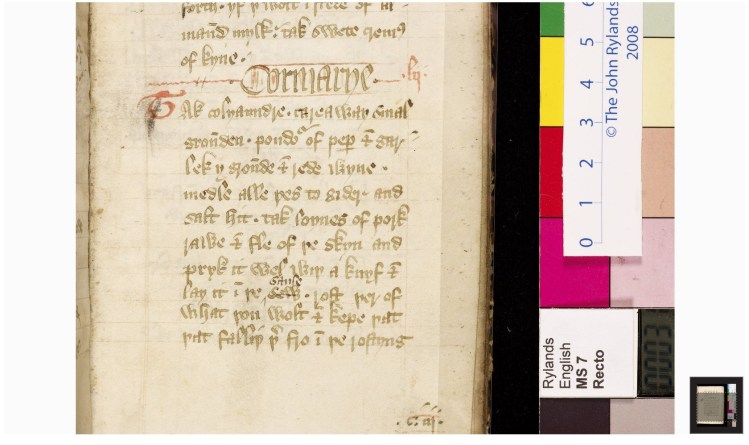 forth. yf þ wolt i stede of al
maūd mylk. tak swete
of kyne.
Cormarye. lij.
Tak colyaundre. careaway smal
grōnden. poudoʳ of peꝑ & gar
lek y grōnde & rede wyne.
medle alle þes to gider and
salt hit. tak loynes of pork
rawe & fle of þe skyn and
pryk it wel wiþ a knyf &
lay it ī þe sause. rost þerof
what þou wolt & kepe þat
þat falliþ þʳ fro ī þe rostyng
0 1 2 3 4 5 6
© The John Rylands
2008
Rylands
English
MS 7
Recto
0003